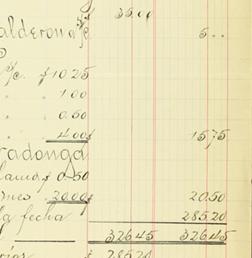 35.00
alderon a/c 5..
a/c. $ 10.25
" 1.00
" 0.50
" 4.00 $ 15.75
radonga
lamo $ 0.50
nes " 20.00 $ 20.50
la fecha 285.20
326.45 326.45
$ 285.20